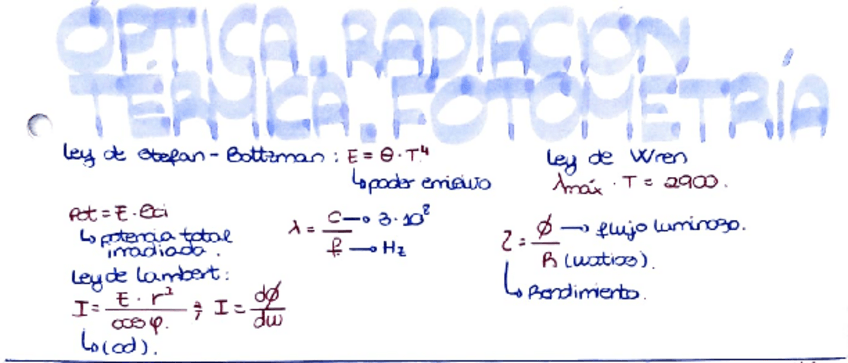 ÓPTICA. RADIACIÓN
TÉRMICA. FOTOMETRÍA
Ley de Stefan-Boltzman: E = θ · T⁴
↳ poder emisivo
Ley de Wren
λmáx · T = 2900.
Pot = E ·
↳ potencia total
irradiada.
λ = C/f
C → 3·10⁸
f → Hz
η = ϕ/P → flujo luminoso.
(watios).
↳ Rendimiento.
Ley de Lambert:
I = E · r²/cos φ. ; I = dϕ/dω
↳ (cd).